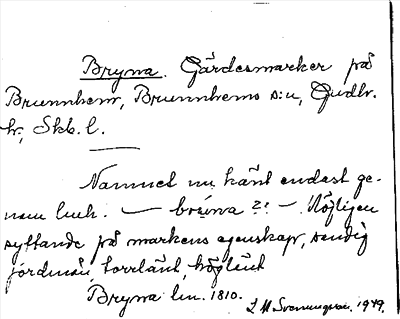 Bryna. Gärdesmarker på
Brunnhem, Brunnhems s:n, Gudh.
h, Skb. l.
Namnet nu känt endast ge-
nom lmh. — – Möjligen
syftande på markens egenskap, sandig
jordmån, torrlänt, höglänt
Bryna lm. 1810.
1949.